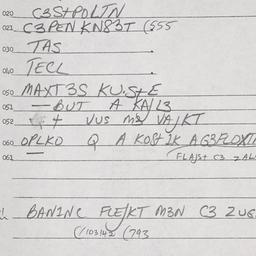 020 C3S+POLTN
021 C3PEN KN83T (555
030 TAS
040 TECL
050 MAXT3S KU.S+E
051 —BUT A KAJL3
052 + VUS M3 VAJKT
060 OPLKO Q A KOS+IK AG3FLOXT
061 FLAJS+ C3 ZAL
BANINC FLEJKT M3N C3 ZUG
(/103142 (793